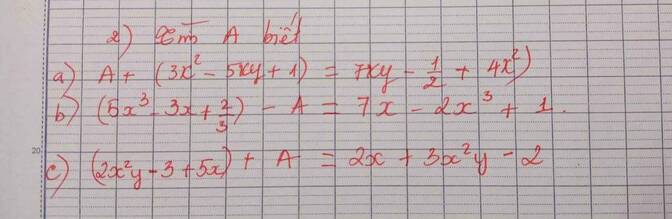 2) Tìm A biết
a) A + (3x² - 5xy + 1) = 7xy - 1/2 + 4x²)
b) (5x³ - 3x + 2/3) - A = 7x - 2x³ + 1.
20
c) (2x²y - 3 + 5x) + A = 2x + 3x²y - 2